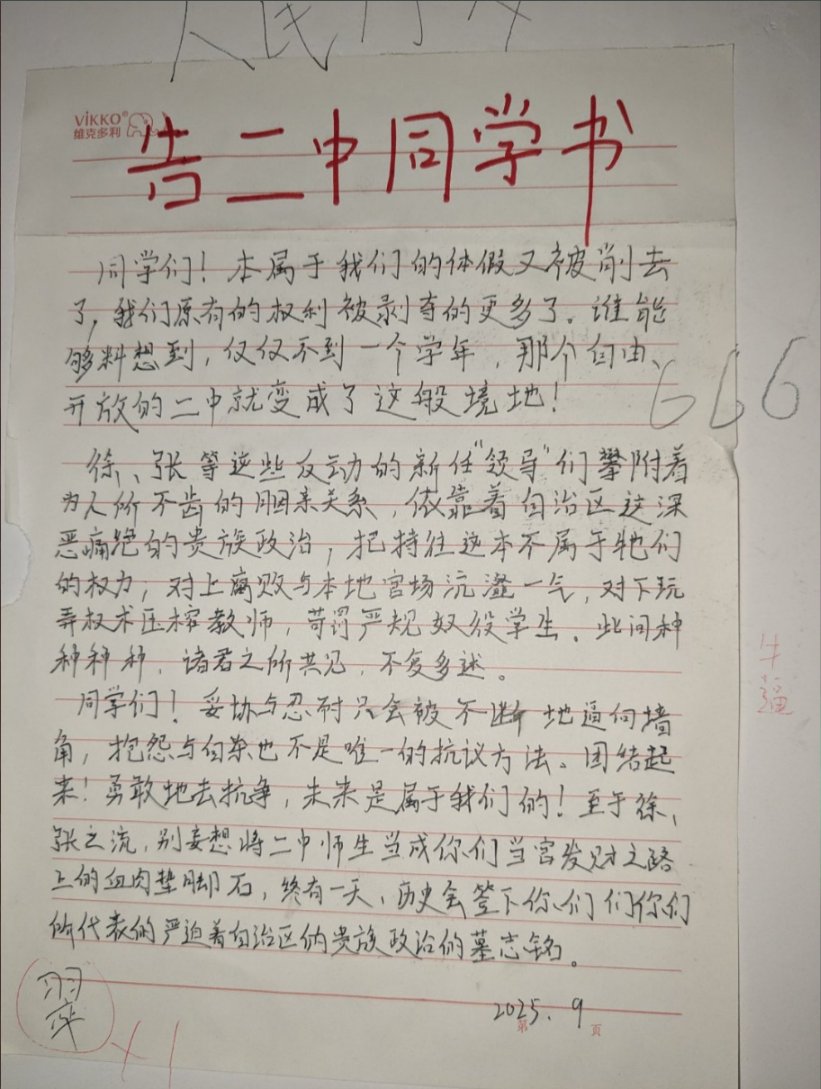 人民
VIKKO®
维克多利
告二中同学书
同学们！本属于我们的休假又被削去
了，我们原有的权利被剥夺的更多了。谁能
够料想到，仅仅不到一个学年，那个自由、
开放的二中就变成了这般境地！
666
徐、张等这些反动的新任“领导”们攀附着
为人所不齿的姻亲关系，依靠着自治区这深
恶痛绝的贵族政治，把持住这本不属于牠们
的权力，对上腐败与本地官场沆瀣一气，对下玩
弄权术压榨教师，苛罚严规奴役学生。此间种
种种种，诸君之所共见，不复多述。
同学们！妥协与忍耐只会被不断地逼向墙
角，抱怨与自杀也不是唯一的抗议方法。团结起
来！勇敢地去抗争，未来是属于我们的！至于徐、
张之流，别妄想将二中师生当成你们当官发财之路
上的血肉垫脚石，终有一天，历史会签下你们们你们
所代表的严迫着自治区的贵族政治的墓志铭。
牛
2025.9
第 页
+1